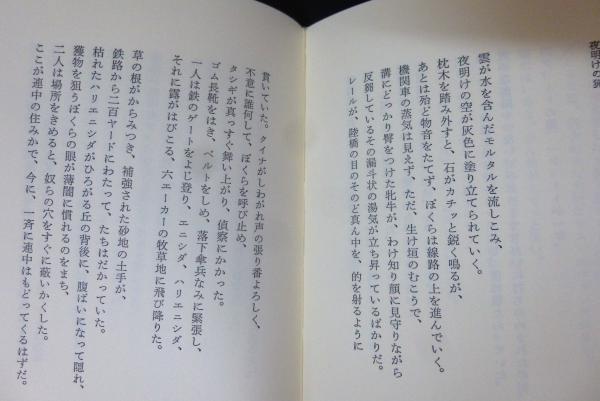 夜明けの
雲が水を含んだモルタルを流しこみ、
夜明けの空が灰色に塗り立てられていく。
枕木を踏み外すと、石がカチッと鋭く鳴るが、
あとは殆ど物音をたてず、ぼくらは線路の上を進んでいく。
機関車の蒸気は見えず、ただ、生け垣のむこうで、
溝にどっかり臀をつけた牝牛が、わけ知り顔に見守りながら
反芻しているその漏斗状の湯気が立ち昇っているばかりだ。
レールが、陸橋の目のそのど真ん中を、的を射るように
貫いていた。タイナがしわがれ声の張り番よろしく、
不意に誰何して、ぼくらを呼び止め、
タシギが真っすぐ舞い上がり、偵察にかかった。
ゴム長靴をはき、ベルトをしめ、落下傘兵なみに緊張し、
一人は鉄のゲートをよじ登り、エニシダ、ハリエニシダ、
それに露がはびこる、六エーカーの牧草地に飛び降りた。
草の根がからみつき、補強された砂地の土手が、
鉄路から二百ヤードにわたって、たちはだかっていた。
枯れたハリエニシダがひろがる丘の背後に、腹ばいになって隠れ、
獲物を狙うぼくらの眼が薄闇に慣れるのをまち、
二人は場所をきめると、奴らの穴をすぐに蔽いかくした。
ここが連中の住みかで、今に、一斉に連中はもどってくるはずだ。